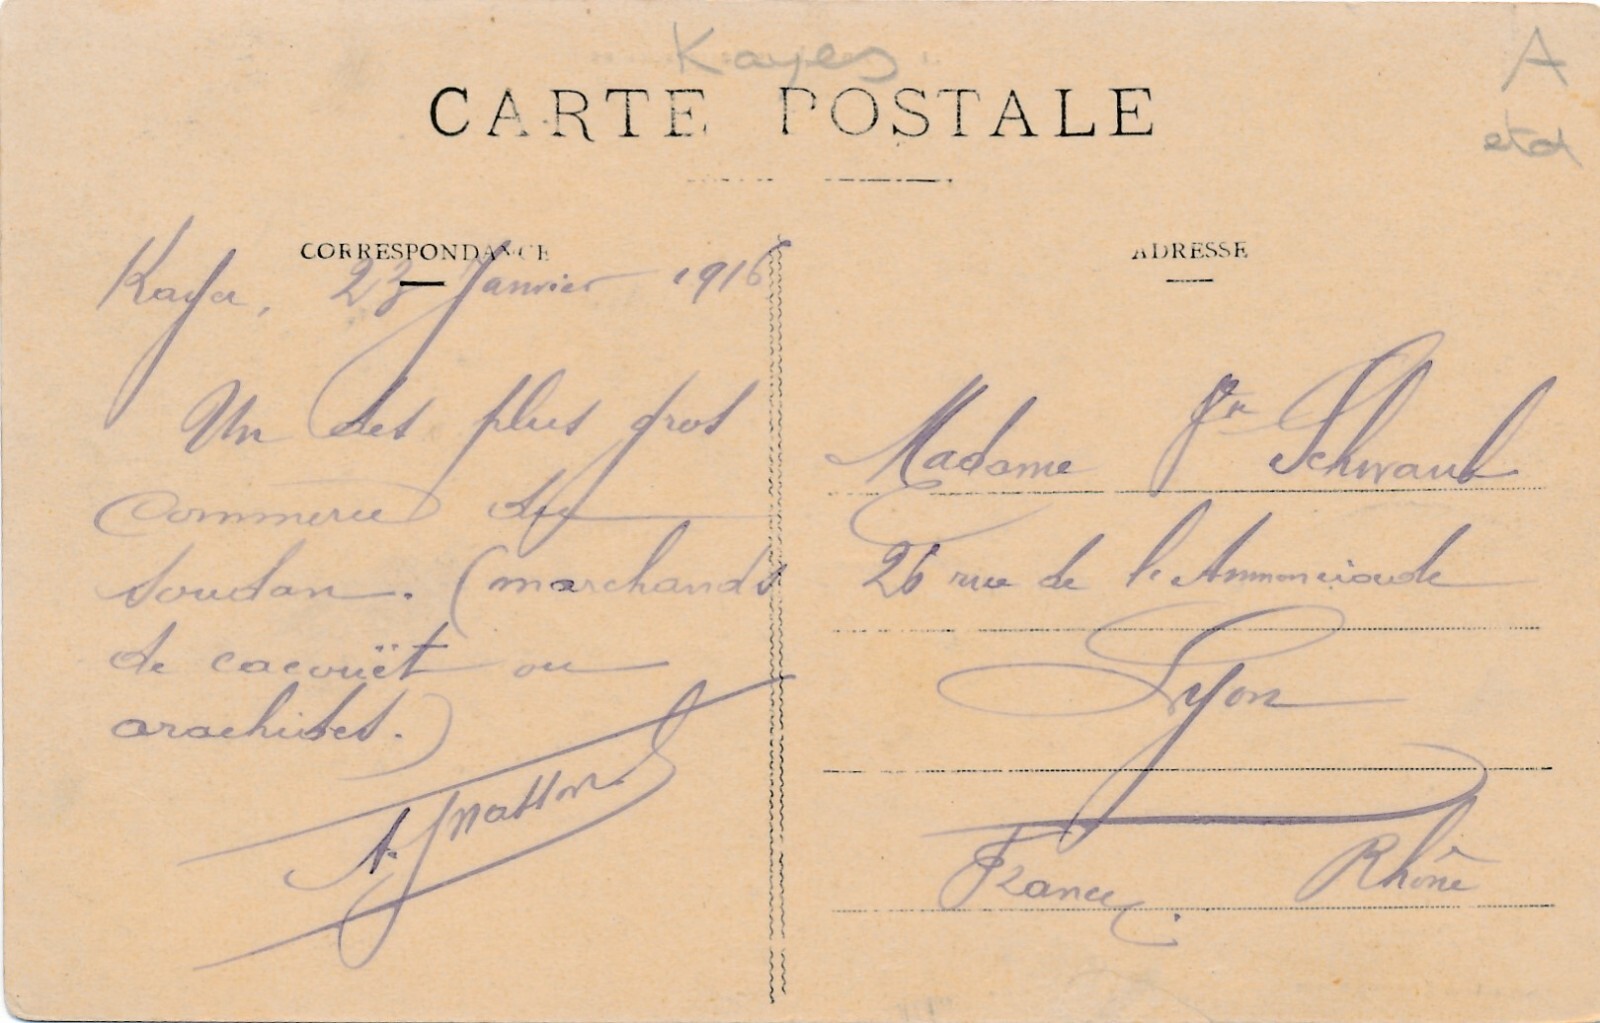 Kayes
A
CARTE POSTALE
CORRESPONDANCE
ADRESSE
23 Janvier 1916
Un des plus gros
commerce du
soudan. (marchands
de cacouët ou
arachides.)
Madame
26 rue de
Lyon
France. Rhône